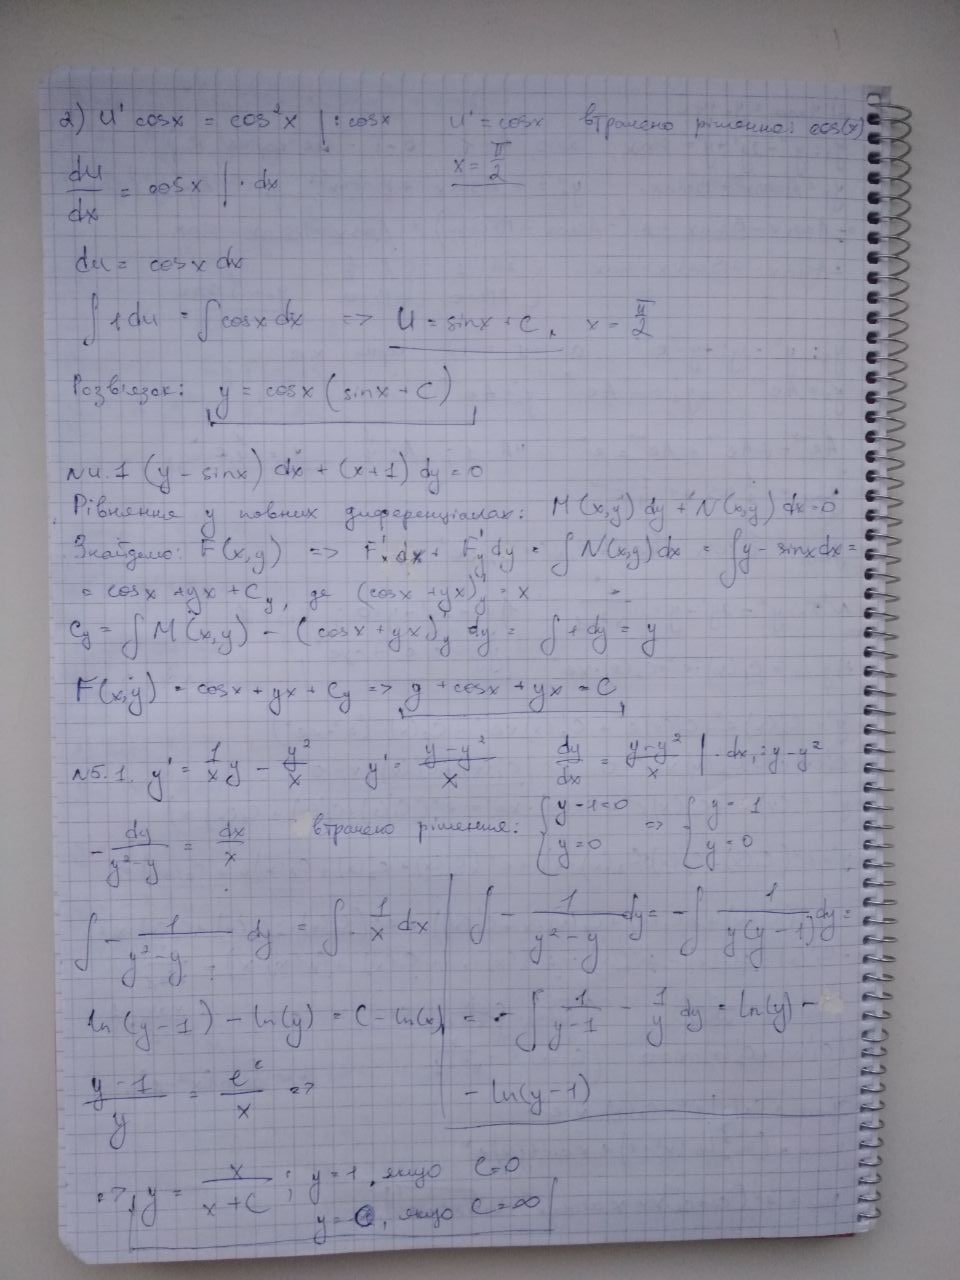 2) u' cosx = cos²x |: cosx u' = cosx втрачено рішення: cos(x)
x = π/2
du/dx = cosx |· dx
du = cosx dx
∫1du = ∫cosx dx => u = sinx + C, x = π/2
Розв'язок: y = cosx (sinx + C)
N4.1 (y - sinx) dx + (x+1) dy = 0
Рівняння у повних диференціалах: M(x,y) dy + N(x,y) dx = 0
Знайдемо: F(x,y) => F'x dx + F'y dy = ∫N(x,y) dx = ∫y - sinx dx =
= cosx + yx + Cy, де (cosx + yx)'y = x
Cy = ∫M(x,y) - (cosx + yx)'y dy = ∫1dy = y
F(x,y) = cosx + yx + Cy => y + cosx + yx = C
N5.1. y' = 1/x y - y²/x y' = (y-y²)/x dy/dx = (y-y²)/x |· dx, : y-y²
- dy/(y²-y) = dx/x втрачено рішення: { y-1=0 y=0 => { y=1 y=0
∫ - 1/(y²-y) dy = ∫ 1/x dx
∫ - 1/(y²-y) dy = -∫ 1/(y(y-1)) dy =
ln(y-1) - ln(y) = C - ln(x)
= -∫ 1/(y-1) - 1/y dy = ln(y) -
- ln(y-1)
(y-1)/y = e^c/x =>
=> y = x/(x+C) ; y=1, якщо C=0
y=0, якщо C=∞